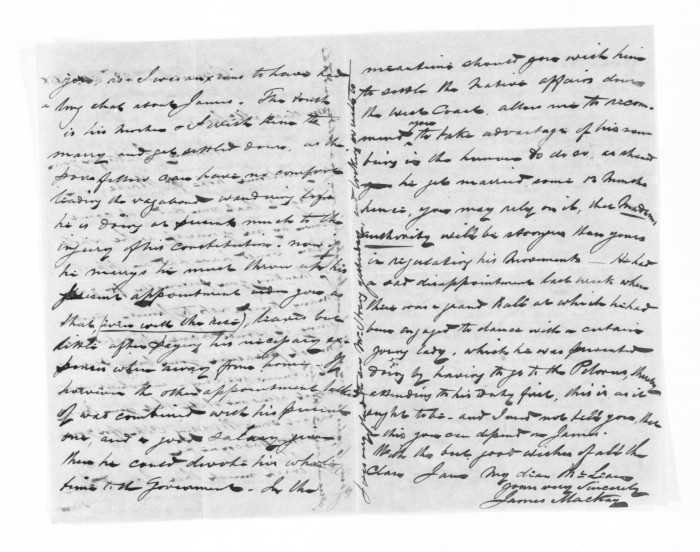 you, as I was anxious to have had
a long chat about James. The truth
is his Mother & I wish them to
marry and get settled down, as the
poor fellow can have no comfort
leading the vagabond wandering life
he is doing at present much to the
injury of his constitution. now if
he marrys he must throw up his
present appointment and give
that, (even with the rise), leaves but
little after paying his necessary ex-
penses when away from home. If
however the other appointment talked
of was combined with his present
one, and a good Salary given
then he could devote his whole
time to the Government. In the
meantime should you wish him
to settle the Native affairs down
the West Coast, allow me to recom-
mend you to take advantage of his now
being in the humour to do so, as should
he get married some 12 Months
hence, you may rely on it, that Madams
authority will be stronger than yours
in regulating his Movements — He had
a sad disappointment last week when
there was a grand Ball at which he had
been engaged to dance with a certain
young lady, which he was prevented
doing by having to go to the Pelorus, thereby
attending to his Duty first, this is as it
ought to be - and I need not tell you, that
in this you can depend on James.
With the best good wishes of all the
Clan I am My dear McLean
yours very Sincerely
James Mackay